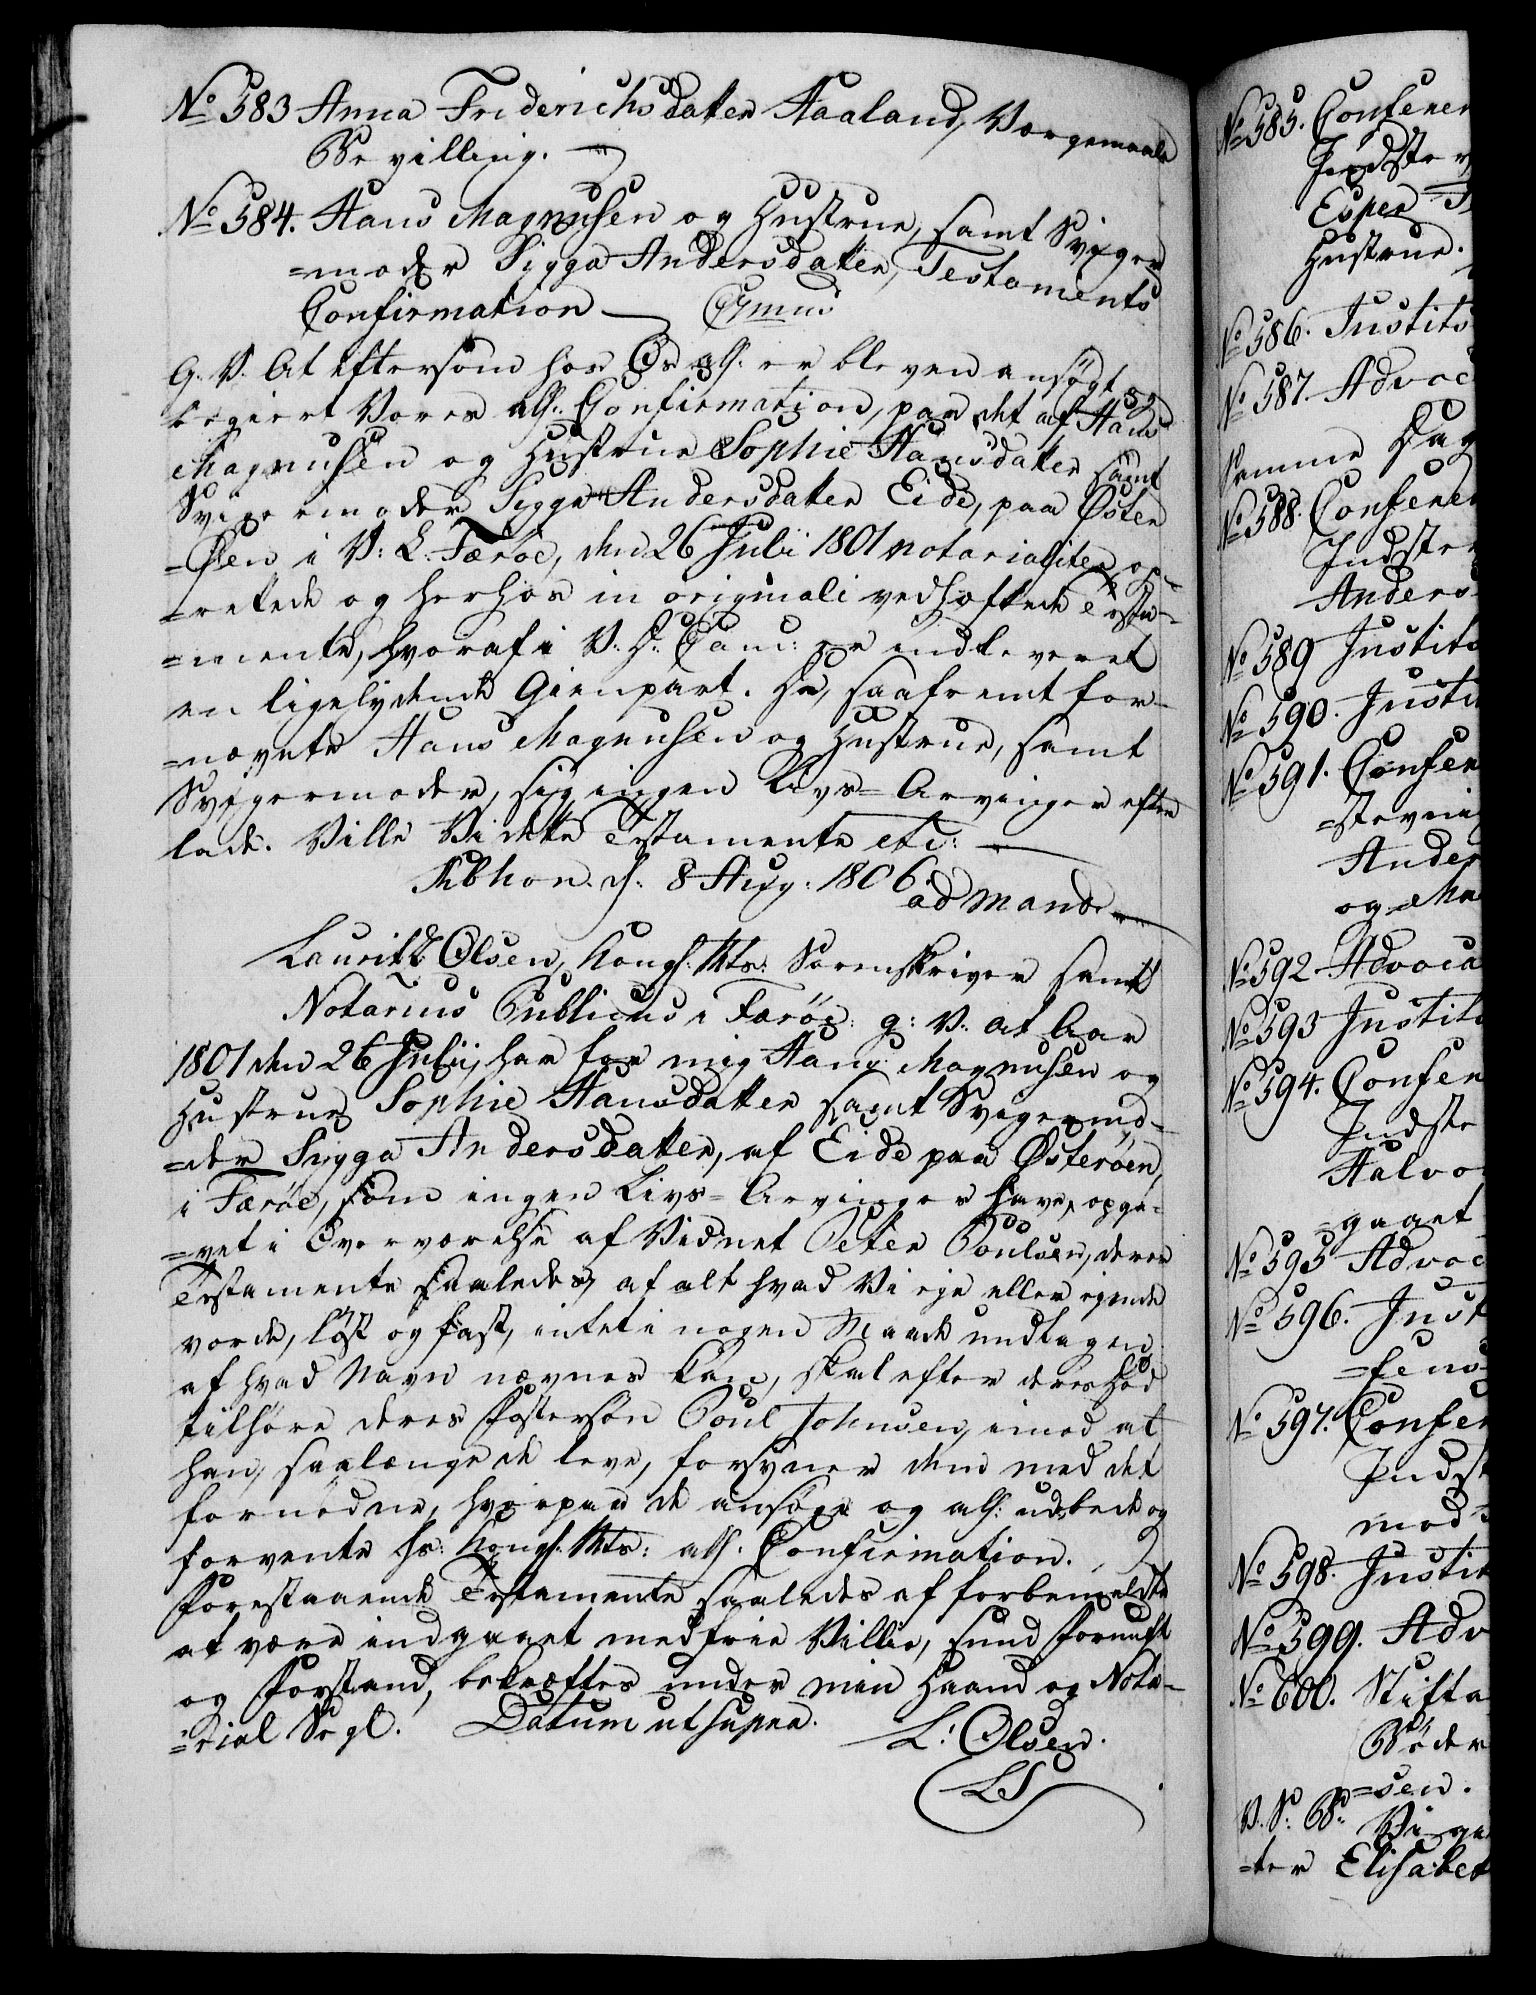 No 583 Anna Friderichsdatter Aaland, Værgemaals
Bevilling.
No 584. Hans Magnusen og Hustrue, samt Sviger
=moder Sigga Andersdatter, Testaments
Confirmation Omnes
G. V. At eftersom hos Os alls. er bleven ansøgt og
begiert Vores alls. Confirmation, paa det af Hans
Magnusen og Hustrue Sophie Hansdatter samt
Svigermoder Sigga Andersdatter Eide, paa Øster
=Øen i V: L. Færöe, den 26 Julii 1801 notarialiter op-
=rettede og herhos in originali vedhæftede Testa-
=mente, hvoraf i V. D. Canc: er indleveret
en ligelydende Gienpart. Da, saafremt for-
=nævnte Hans Magnusen og Hustrue, samt
Svigermoder, sig ingen Livs-Arvinger efter
lade. Ville Vi dette Testamente etc:
Kbhvn. d: 8 Aug: 1806.
ad mand.
Lauritz Olsen, Kongl: Mts: Sorenskriver samt
Notarius Publicus i Færöe: g: V. at Aar
1801 den 26 Julii, har for mig Hans Magnusen og
Hustrue Sophie Hansdatter samt Svigermo-
=der Sigga Andersdatter, af Eide paa Østerøen,
i Færöe, som ingen Livs-Arvinger have, opgi-
=vet i Overværelse af Vidnet Peter Poulsen, deres
Testamente saaledes, at alt hvad Vi eje eller ejende
vorde, løst og fast, intet i nogen Maade undtagen
af hvad Navn nævnes kan, skal efter deres Død
tilhøre deres Fostersøn Poul Johnsen, imod at
han, saalænge de leve, forsyner dem med det
fornødne, hvorpaa de ansøge og alls: udbede og
forvente hs: Kongl. Mts: alls. Confirmation.
Forestaaende Testamente saaledes af forbemeldte
at være indgaaet med frie Villie, sund Fornuft
og Forstand, bekræftes under min Haand og Nota-
=rial Segl. Datum ut supra. L: Olsen.
LS
No 585. Conferen
Indste
Espen
Hustrue.
No 586. Justits
No 587 Advoc
samme Dag
No 588. Conferen
Indste
Anders
No 589 Justits
No 590. Justi
No 591. Confer
=stevni
Ander
og
No 592. Advoca
No 593 Justits
No 594. Confer
Indste
Halvo
gaaet
No 595 Advoc
No 596. Just
=sens
No 597. Confer
Indst
mod
No 598. Justit
No 599. Adv
No 600. Stifta
Peder
=sen.
V. S: B: Vi gi
=ter Elisabet